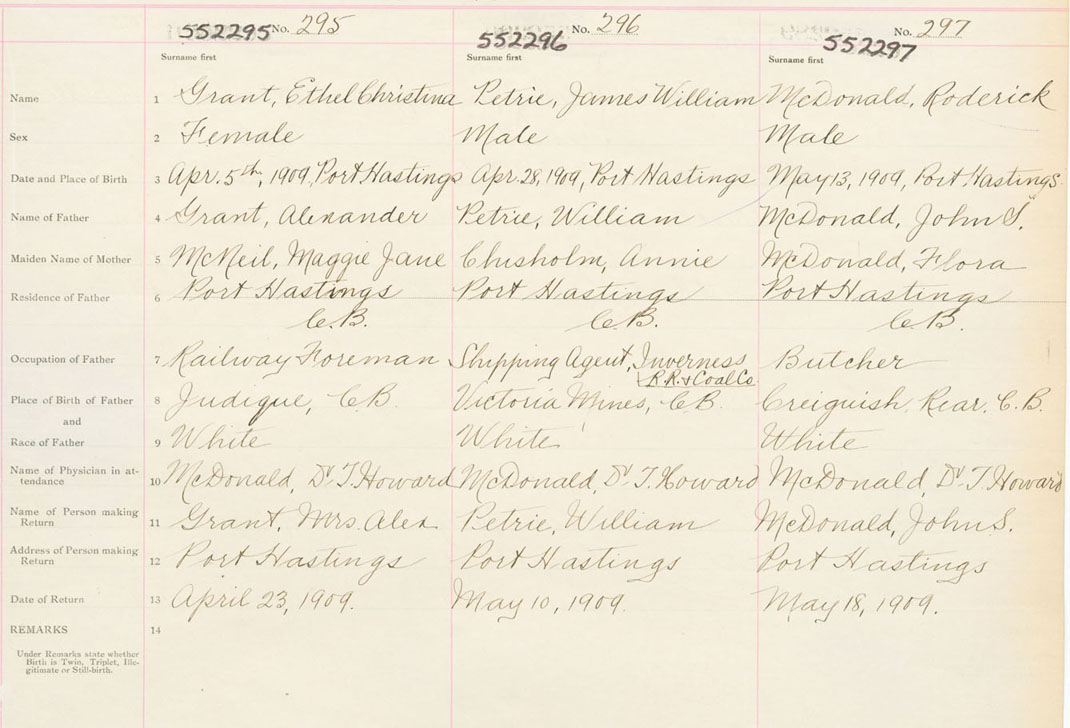 552295 No. 295 552296 No. 296 552297 No. 297
Surname first Surname first Surname first
Name 1 Grant, Ethel Christina Petrie, James William McDonald, Roderick
Sex 2 Female Male Male
Date and Place of Birth 3 Apr. 5th, 1909, Port Hastings Apr. 28, 1909, Port Hastings May 13, 1909, Port Hastings
Name of Father 4 Grant, Alexander Petrie, William McDonald, John S.
Maiden Name of Mother 5 McNeil, Maggie Jane Chisholm, Annie McDonald, Flora
Residence of Father 6 Port Hastings Port Hastings Port Hastings
C.B. C.B. C.B.
Occupation of Father 7 Railway Foreman Shipping Agent, Inverness Butcher
R.R. & Coal Co
Place of Birth of Father 8 Judique, C.B. Victoria Mines, C.B. Creiguish Rear. C.B.
and
Race of Father 9 White White White
Name of Physician in at-
tendance 10 McDonald, Dr T. Howard McDonald, Dr T. Howard McDonald, Dr T. Howard
Name of Person making
Return 11 Grant, Mrs. Alex Petrie, William McDonald, John S.
Address of Person making
Return 12 Port Hastings Port Hastings Port Hastings
Date of Return 13 April 23, 1909. May 10, 1909. May 18, 1909.
REMARKS 14
Under Remarks state whether
Birth is Twin, Triplet, Ille-
gitimate or Still-birth.